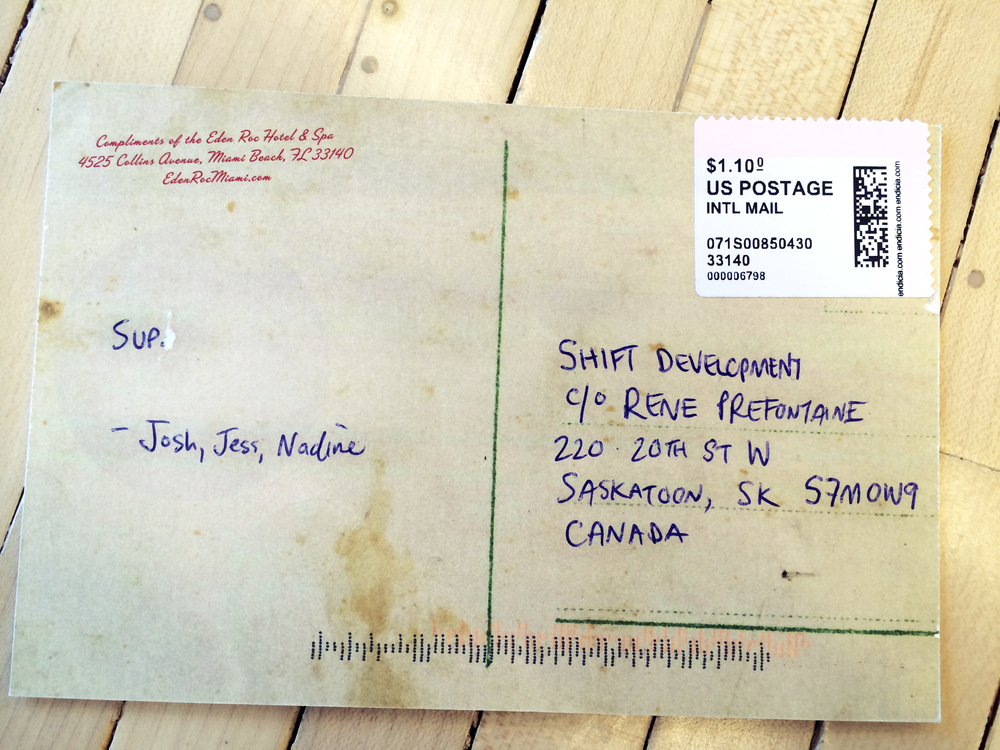 Compliments of the Eden Roc Hotel & Spa
4525 Collins Avenue, Miami Beach, FL 33140
EdenRocMiami.com
$1.10⁰
US POSTAGE
INTL MAIL
071S00850430
33140
000006798
endicia.com endicia.com endicia.com
Sup.
- Josh, Jess, Nadine
SHIFT DEVELOPMENT
c/o RENE PREFONTAINE
220 · 20TH ST W
SASKATOON, SK S7M0W9
CANADA